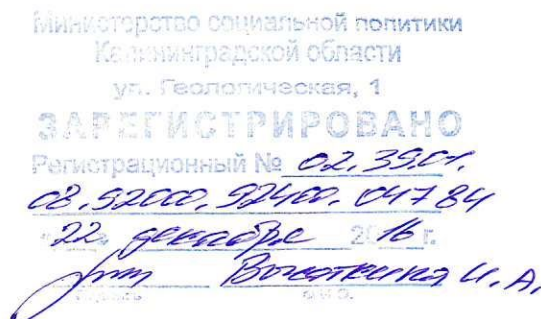 Министерство социальной политики
Калининградской области
ул. Геологическая, 1
ЗАРЕГИСТРИРОВАНО
Регистрационный № 02.3901.
08.52000.52400.04784
"22" декабря 2016 г.
Высоткина И.А.
Ф.И.О.